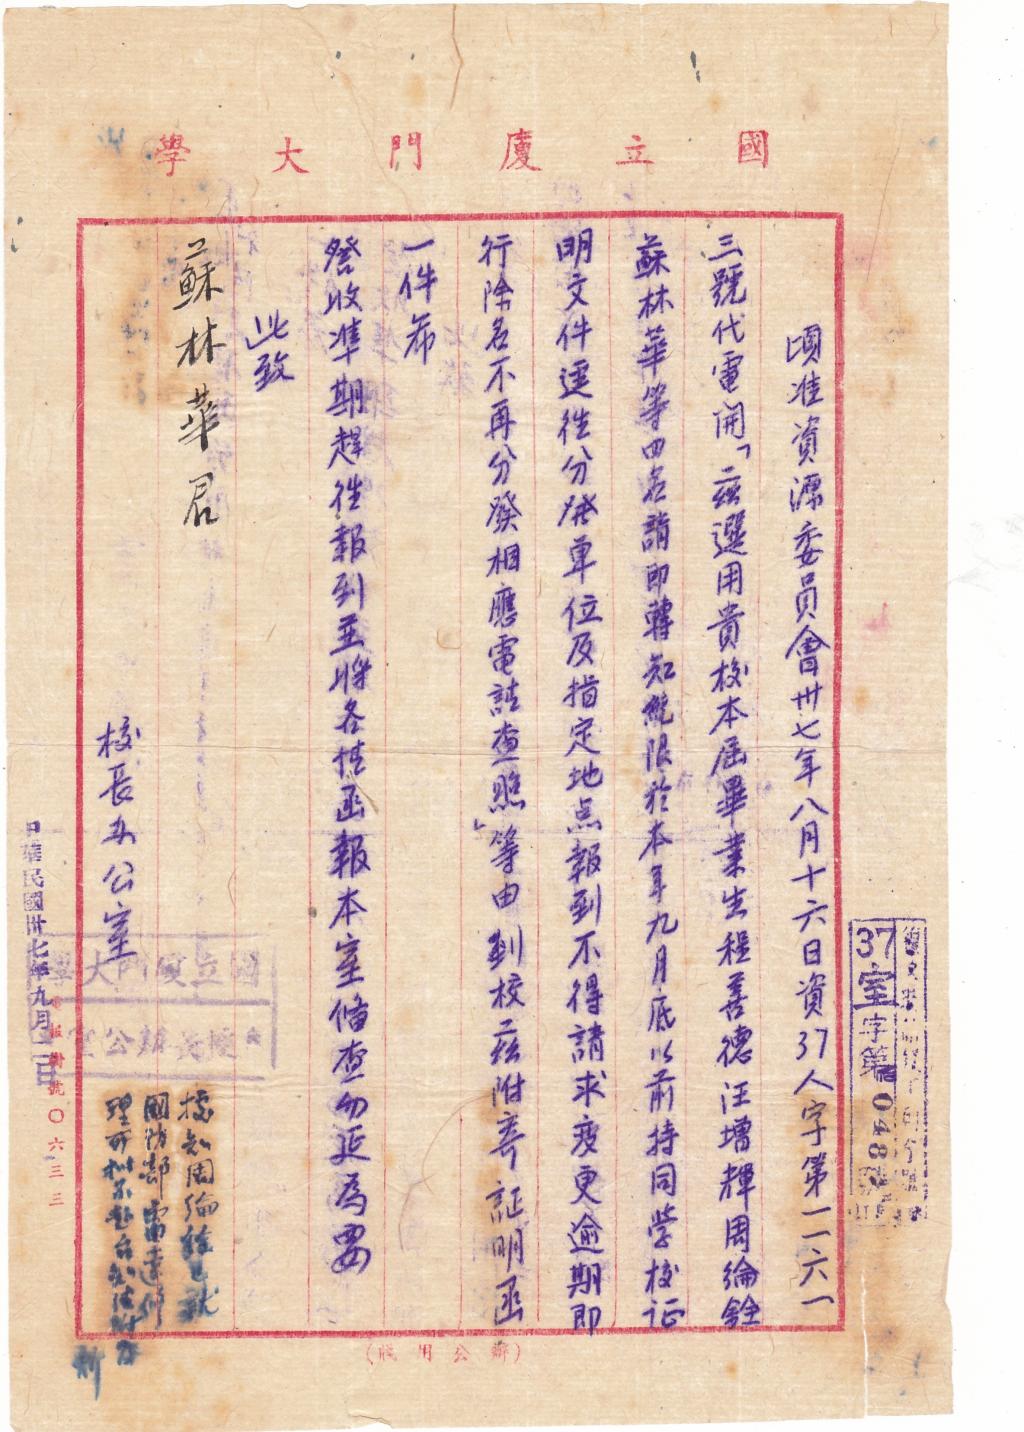 國立廈門大學
頃准資源委員會卅七年八月十六日資37人字第一一六一
三號代電開「茲選用貴校本屆畢業生程善德汪增輝周綸銓
蘇林華等四名請即轉知統限於本年九月底以前持同學校証
明文件逕往分發單位及指定地点報到不得請求变更逾期即
行除名不再分發相應電請查照」等由到校茲附寄証明函
一件希
詧收準期趕往報到並將各情函報本室備查勿延為要
此致
蘇林華君
校長办公室
中華民國卅七年九月二日
電報掛號〇六三三
37室字第0482
國立廈門大學
校長辦公室
據知周綸銓已就
國防部雷達修
(辦公用牋)